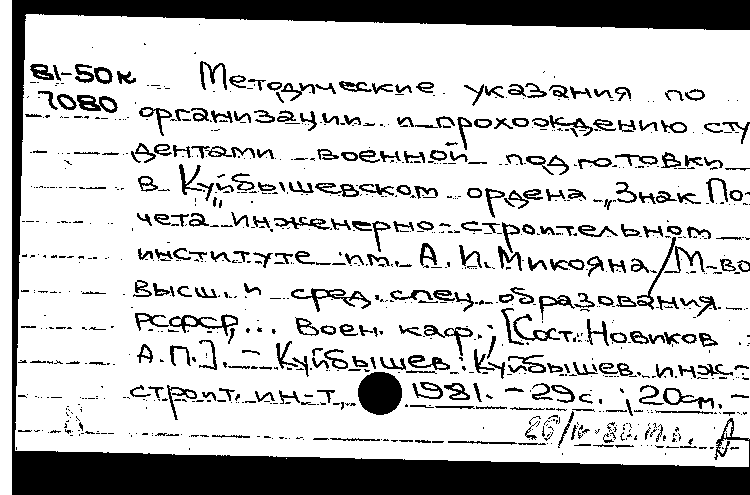 81-50к Методические указания по
7080 организации и прохождению сту
дентами военной подготовки
в Куйбышевском ордена „Знак По-
чета" инженерно-строительном
институте им. А. И. Микояна / М-во
высш. и сред. спец. образования
РСФСР, ... Воен. каф.; [Сост. Новиков
А.П.]. - Куйбышев: Куйбышев. инж.-
строит. ин-т, 1981. - 29с.; 20см. -
26/IV-82.